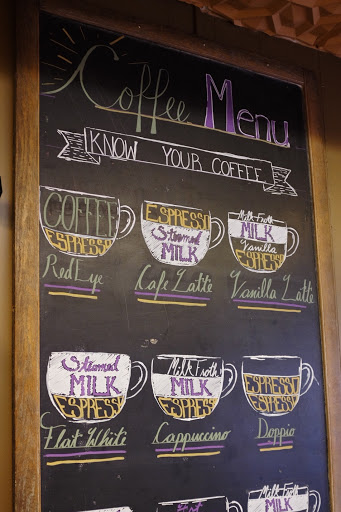 Coffee Menu
KNOW YOUR COFFEE
COFFEE
ESPRESSO
Red Eye
ESPRESSO
Steamed
MILK
Cafe Latte
Milk Froth
MILK
Vanilla
ESPRESSO
Vanilla Latte
Steamed
MILK
ESPRESSO
Flat White
Milk Froth
MILK
ESPRESSO
Cappuccino
ESPRESSO
ESPRESSO
Doppio
Milk Froth
MILK